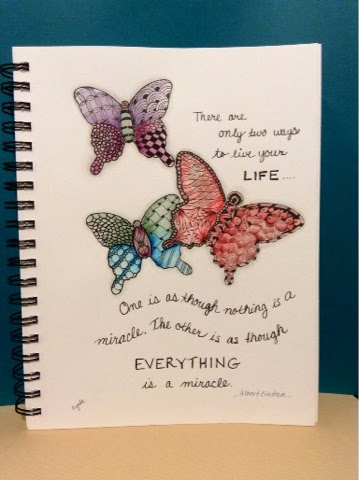 There are
only two ways
to live your
LIFE....
One is as though nothing is a
miracle. The other is as though
EVERYTHING
is a miracle.
...Albert Einstein...